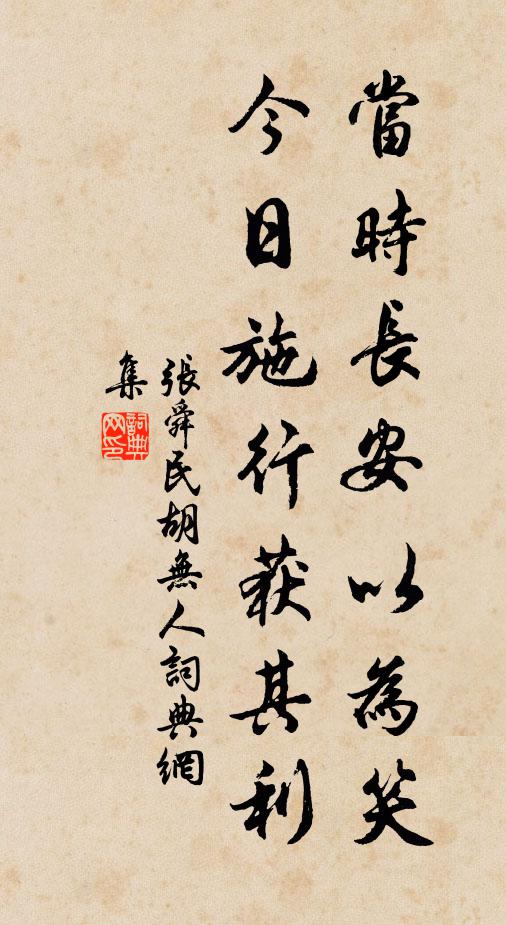 當時長安以為笑
今日施行获其利
張舜民胡無人詞典網
集
詞典
网印